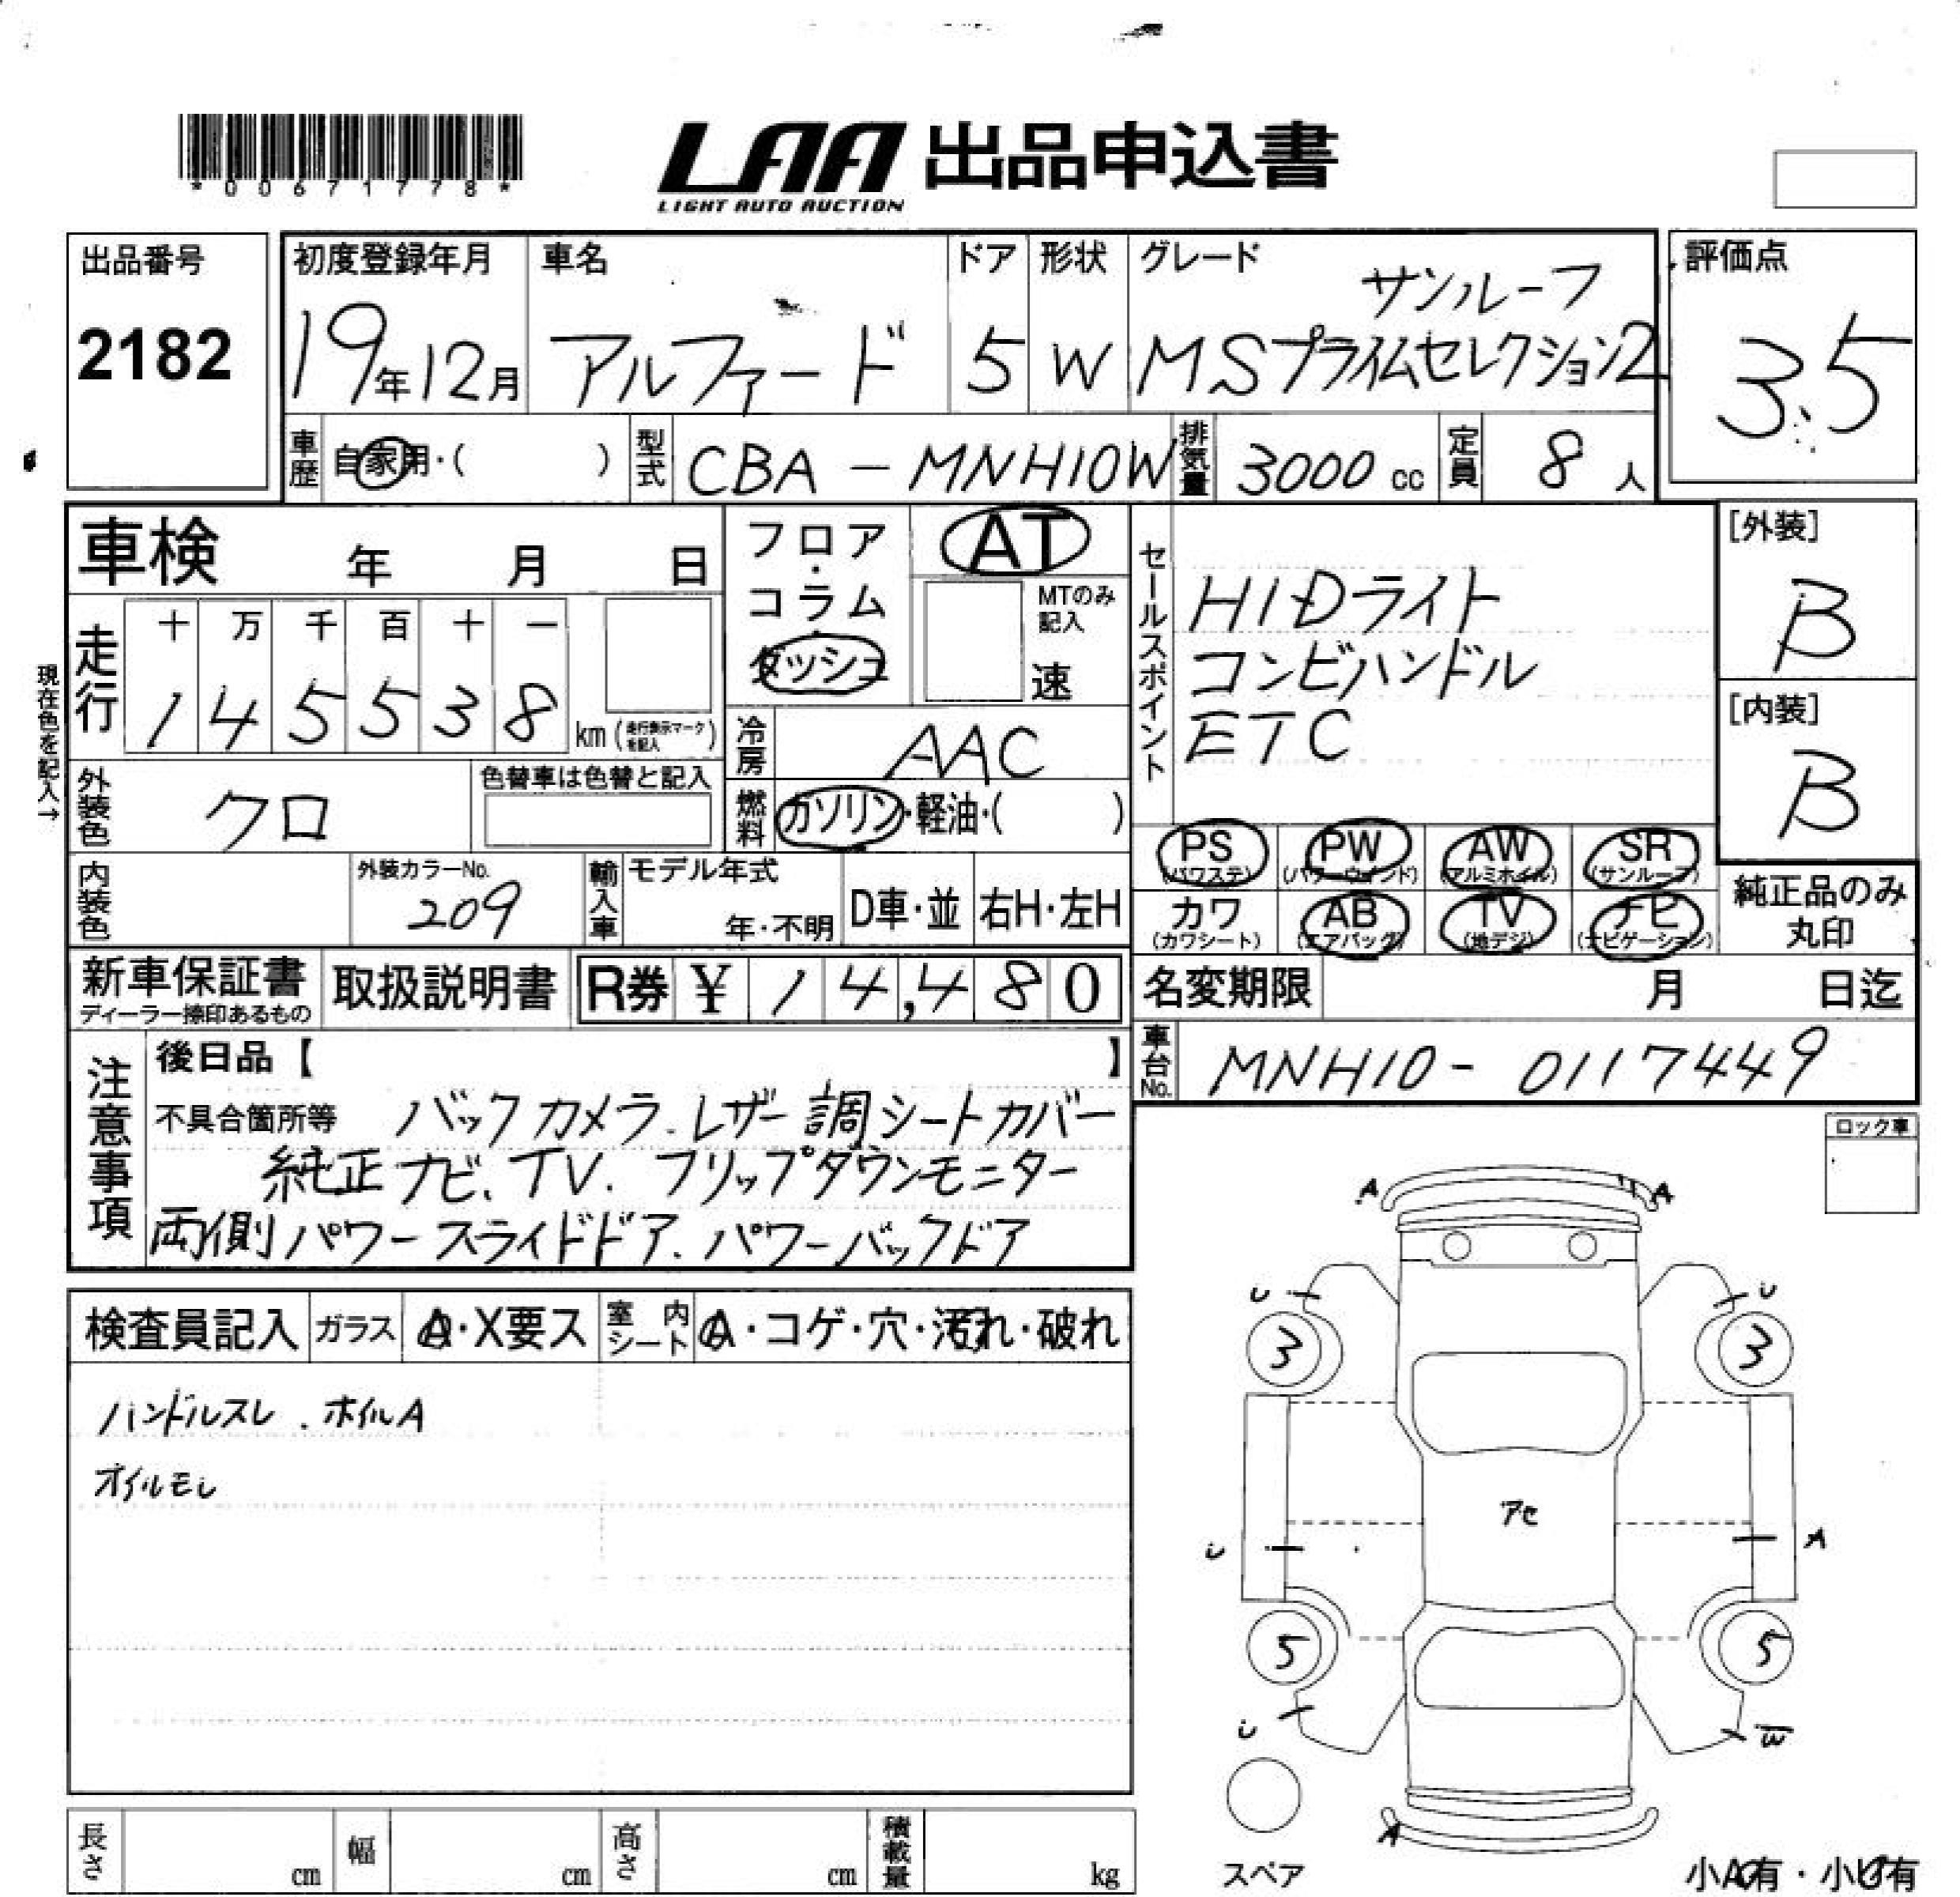 *00671778*
LAA 出品申込書
LIGHT AUTO AUCTION
出品番号
2182
初度登録年月
19年12月
車名
アルファード
ドア
5
形状
W
グレード
サンルーフ
MSプライムセレクション2
評価点
3.5
車歴
自家用・( )
型式
CBA-MNH10W
排気量
3000 cc
定員
8 人
車検 年 月 日
フロア・コラム・ダッシュ
AT
MTのみ記入
速
セールスポイント
HIDライト
コンビハンドル
ETC
[外装]
B
[内装]
B
現在色を記入→
走行
十 万 千 百 十 一
1 4 5 5 3 8
km (走行表示マークを記入)
冷房
AAC
外装色
クロ
色替車は色替と記入
燃料
ガソリン・軽油・( )
内装色
外装カラーNo.
209
輸入車
モデル年式
年・不明
D車・並
右H・左H
PS (パワステ)
PW (パワーウインド)
AW (アルミホイル)
SR (サンルーフ)
カワ (カワシート)
AB (エアバッグ)
TV (地デジ)
ナビ (ナビゲーション)
純正品のみ丸印
新車保証書
ディーラー捺印あるもの
取扱説明書
R券 ¥ 14,480
名変期限 月 日迄
車台No.
MNH10-0117449
注意事項
後日品【 】
不具合箇所等 バックカメラ.レザー調シートカバー
純正ナビ、TV. フリップダウンモニター
両側パワースライドドア.パワーバックドア
ロック車
検査員記入
ガラス
A・X要ス
室内シート
A・コゲ・穴・汚れ・破れ
ハンドルスレ.ホイルA
オイルモレ
A A
U U
3 3
アセ
U A
5 5
U W
A
スペア
小A有・小U有
長さ cm
幅 cm
高さ cm
積載量 kg